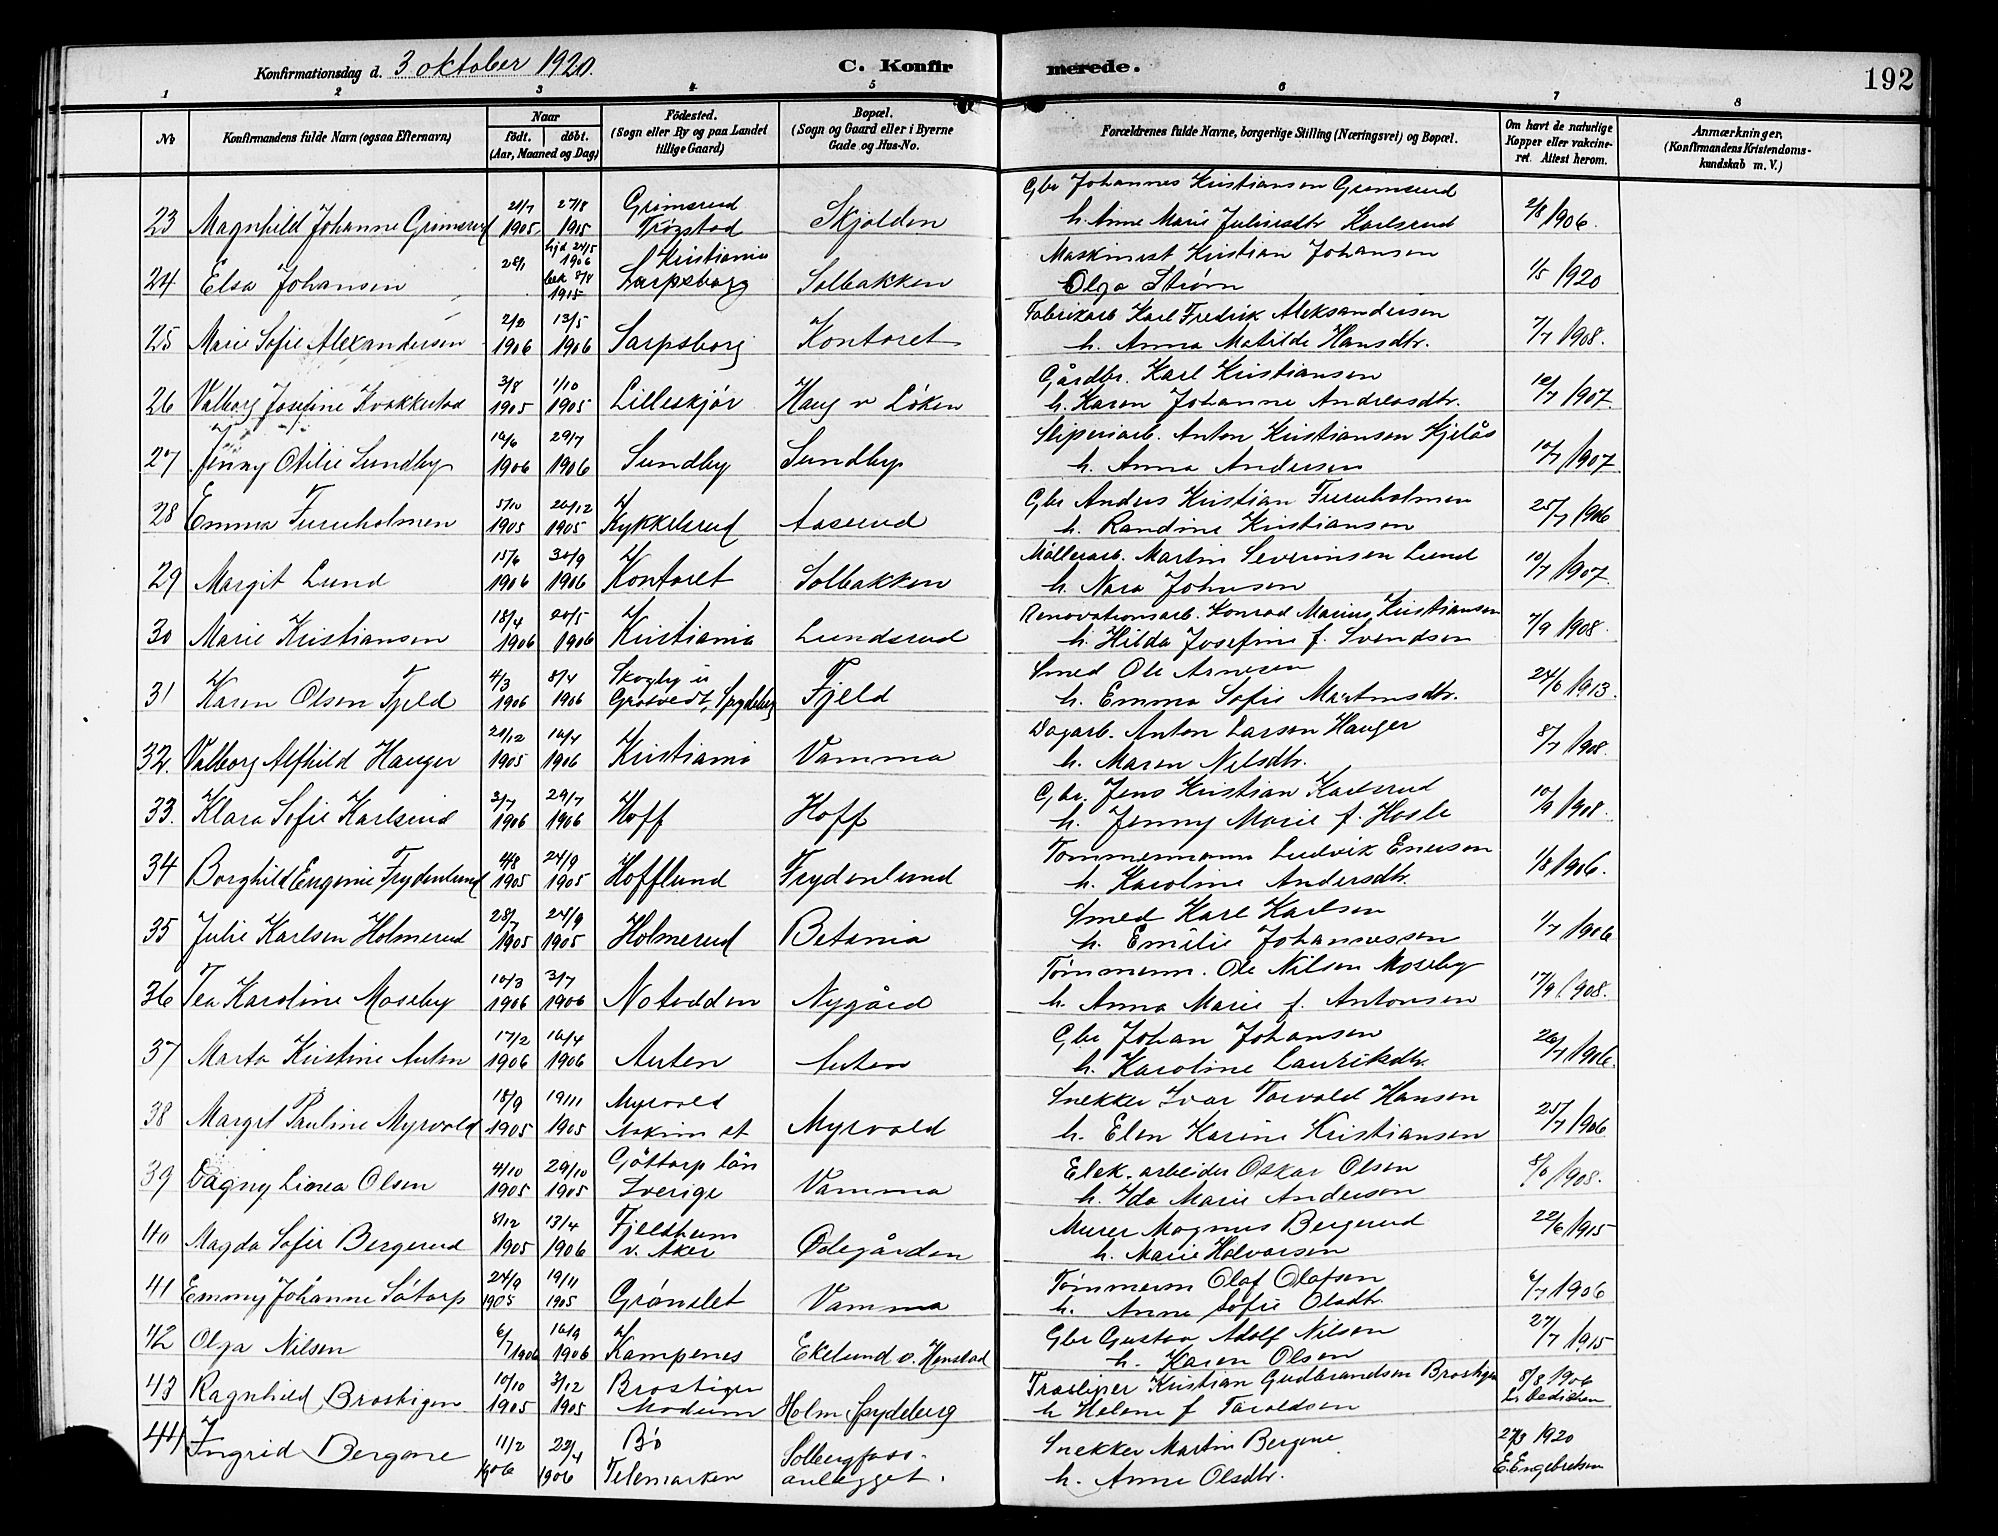 Konfirmationsdag d. 3 oktober 1920.
C. Konfirmerede.
192
1 2 3 4 5 6 7 8
No
Konfirmandens fulde Navn (ogsaa Efternavn)
Naar
født. døbt.
(Aar, Maaned og Dag)
Fødested.
(Sogn eller By og paa Landet
tillige Gaard)
Bopæl.
(Sogn og Gaard eller i Byerne
Gade og Hus-No.
Forældrenes fulde Navne, borgerlige Stilling (Næringsvei) og Bopæl.
Om havt de naturlige
Kopper eller vakcine-
ret. Attest herom.
Anmærkninger,
(Konfirmandens Kristendoms-
kundskab m. V.)
Grimsrud Gbr Johannes Kristiansen Grimsrud
23 Magnhild Johanne Grimsrud 1905 27/8 1905 Trøgstad Skjolden h. Anne Marie Juliusdtr Karlsrud 2/8 1906.
1906 Kristiania Maskinist Kristian Johansen
24 Elsa Johansen Sarpsborg Solbakken Olga Strøm 1/5 1920
2/3 13/5 Fabrikarb Karl Fredrik Aleksandersen
25 Marie Sofie Alexandersen 1906 1906 Sarpsborg Kontoret h. Anna Matilde Hansdtr. 7/7 1908.
3/8 1/10 Gårdbr. Karl Kristiansen
26 Valborg Josefine Krokkestad 1905 1905 Lilleskjør Haug v Løken h. Karen Johanne Andreasdtr. 12/7 1907.
29/7 Sliperiarb. Anton Kristiansen Kjelås
27 Jenny Otilie Sundby 1906 1906 Sundby Sundby h. Anna Andersen 10/7 1907
5/10 26/12 Gbr Anders Kristian Furuholmen
28 Emma Furuholmen 1905 1905 Kykkelsrud Aaserud h. Randine Kristiansen 25/7 1906
15/6 30/9 Møllerarb. Martin Severinsen Lund
29 Margit Lund 1906 1906 Kontoret Solbakken h. Nora Johnsen 10/7 1907.
18/4 20/5 Renovationsarb. Konrad Marius Kristiansen
30 Marie Kristiansen 1906 1906 Kristiania Lundsrud h. Hilda Josefine f. Svendsen 7/9 1908.
4/3 8/4 Skogby u Smed Ole Arnesen
31 Karen Olsen Fjeld 1906 1906 Grøtvedt, Spydeberg Fjeld h. Emma Sofie Martinsdtr. 24/6 1913.
21/12 16/4 Dagarb. Anton Larsen Hauger
32. Valborg Alfhild Hauger 1905 1906 Kristiania Vamma h. Maren Nilsdtr. 8/7 1908.
3/7 29/7 Gbr. Jens Kristian Karlsrud
33. Klara Sofie Karlsrud 1906 1906 Hoff Hoff h. Jenny Marie f. Hosle 10/9 1908.
4/8 24/9 Tømmermann Ludvik Enersen
34 Borghild Eugenie Frydenlund 1905 1905 Hofflund Frydenlund h. Karoline Andersdtr. 1/8 1906.
28/7 24/9 Smed Karl Karlsen
35 Julie Karlsen Holmerud 1905 1905 Holmerud Betania h. Emilie Johannessen 1/7 1906
10/3 3/7 Tømmerm. Ole Nilsen Moseby
36 Tea Karoline Moseby 1906 1906 Notodden Nygård h. Anna Marie f. Antonsen 17/9 1908.
17/2 16/4 Gbr Johan Johansen
37 Marta Kristine Auten 1906 1906 Auten Auten h. Karoline Lauriksdtr. 26/7 1906.
18/9 19/11 Myrvold Snekker Ivar Torvald Hansen
38 Margit Pauline Myrvold 1905 1905 Askim st Myrvold h. Elen Karine Kristiansen 25/7 1906
4/10 29/10 Gøttorp län Elek. arbeider Oskar Olsen
39 Dagny Linea Olsen 1905 1905 Sverige Vamma h. Ida Marie Andersen 1908.
8/12 13/4 Fjeldheim Murer Magnus Bergerud
40 Magda Sofie Bergerud 1905 1906 v. Aker Ødegården h. Marie Halvorsen 22/6 1915
24/9 19/11 Tømmerm Olaf Olafsen
41 Emmy Johanne Søtorp 1905 1905 Grønslet Vamma h. Anne Sofie Olsdtr. 6/7 1906
6/7 16/9 Gbr Gustav Adolf Nilsen
42 Olga Nilsen 1906 1906 Kampenes Ekelund v. Henstad h. Karen Olsen 27/7 1915
10/10 3/12 Brostigen Træsliper Kristian Gudbrandsen Brostigen 8/8 1906
43 Ragnhild Brostigen 1905 1905 Modum Holm Spydeberg h Helene f Taraldsen
11/2 22/4 Bø Solbergfoss- Snekker Martin Bergene 27/3 1920
44 Ingrid Bergene 1906 1906 Telemarken anlegget. h. Anne Olsdtr. E. Engebretsen